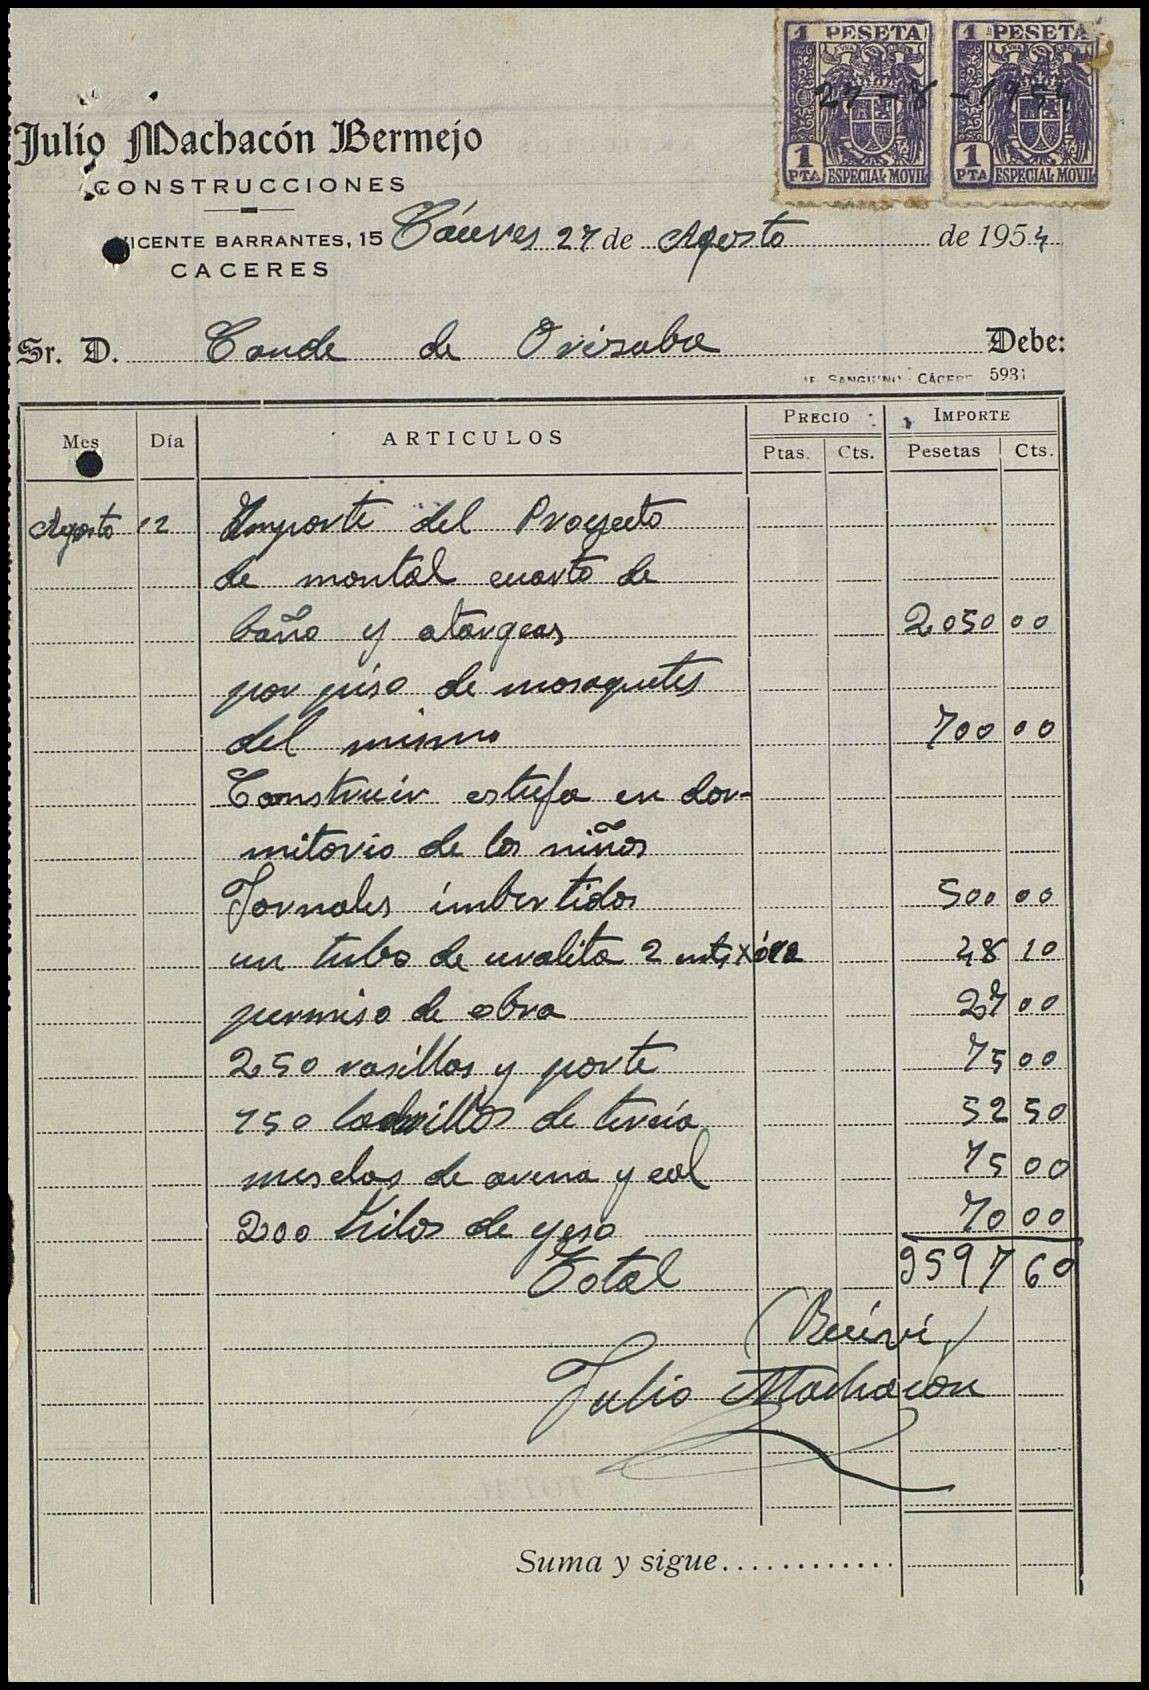 1 PESETA 1 PESETA
27-8-1954
1 PTA ESPECIAL MOVIL 1 PTA ESPECIAL MOVIL
Julio Machacón Bermejo
CONSTRUCCIONES
VICENTE BARRANTES, 15
CACERES
Cáceres 27 de Agosto de 1954
Sr. D. Conde de Orisaba Debe:
SANGUINO CÁCERE 5931
Mes Día ARTICULOS PRECIO IMPORTE
Ptas. Cts. Pesetas Cts.
Agosto 12 Importe del Proyecto
de montal cuarto de
baño y atargeas 2050 00
por piso de mosaquetes
del mismo 700 00
Construir estufa en dor-
mitorio de los niños
Jornales imbertidos 500 00
un tubo de uralita 2 mts x 48 10
permiso de obra 27 00
250 rasillas y porte 75 00
150 ladrillos de tercia 52 50
mesclas de arena y cal 75 00
200 kilos de yeso 70 00
Total 3597 60
Recivi
Julio Machacón
Suma y sigue